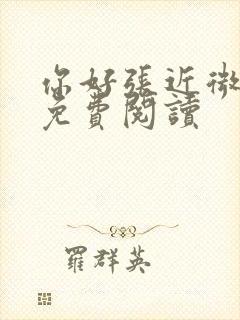 你好張近微
免費閱讀
羅群英